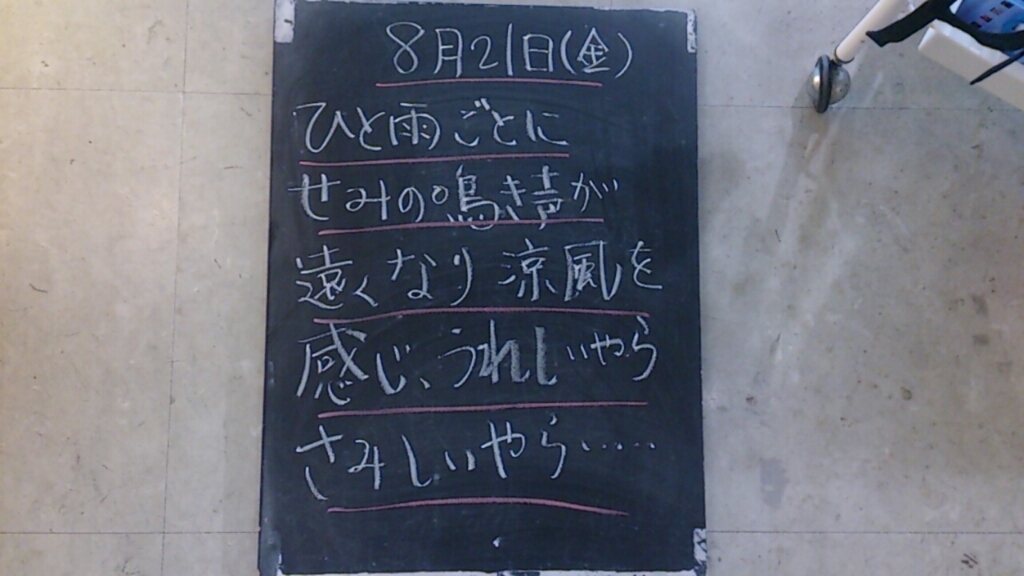 8月21日(金)
ひと雨ごとに
せみの鳴き声が
遠くなり涼風を
感じ、うれしいやら
さみしいやら……